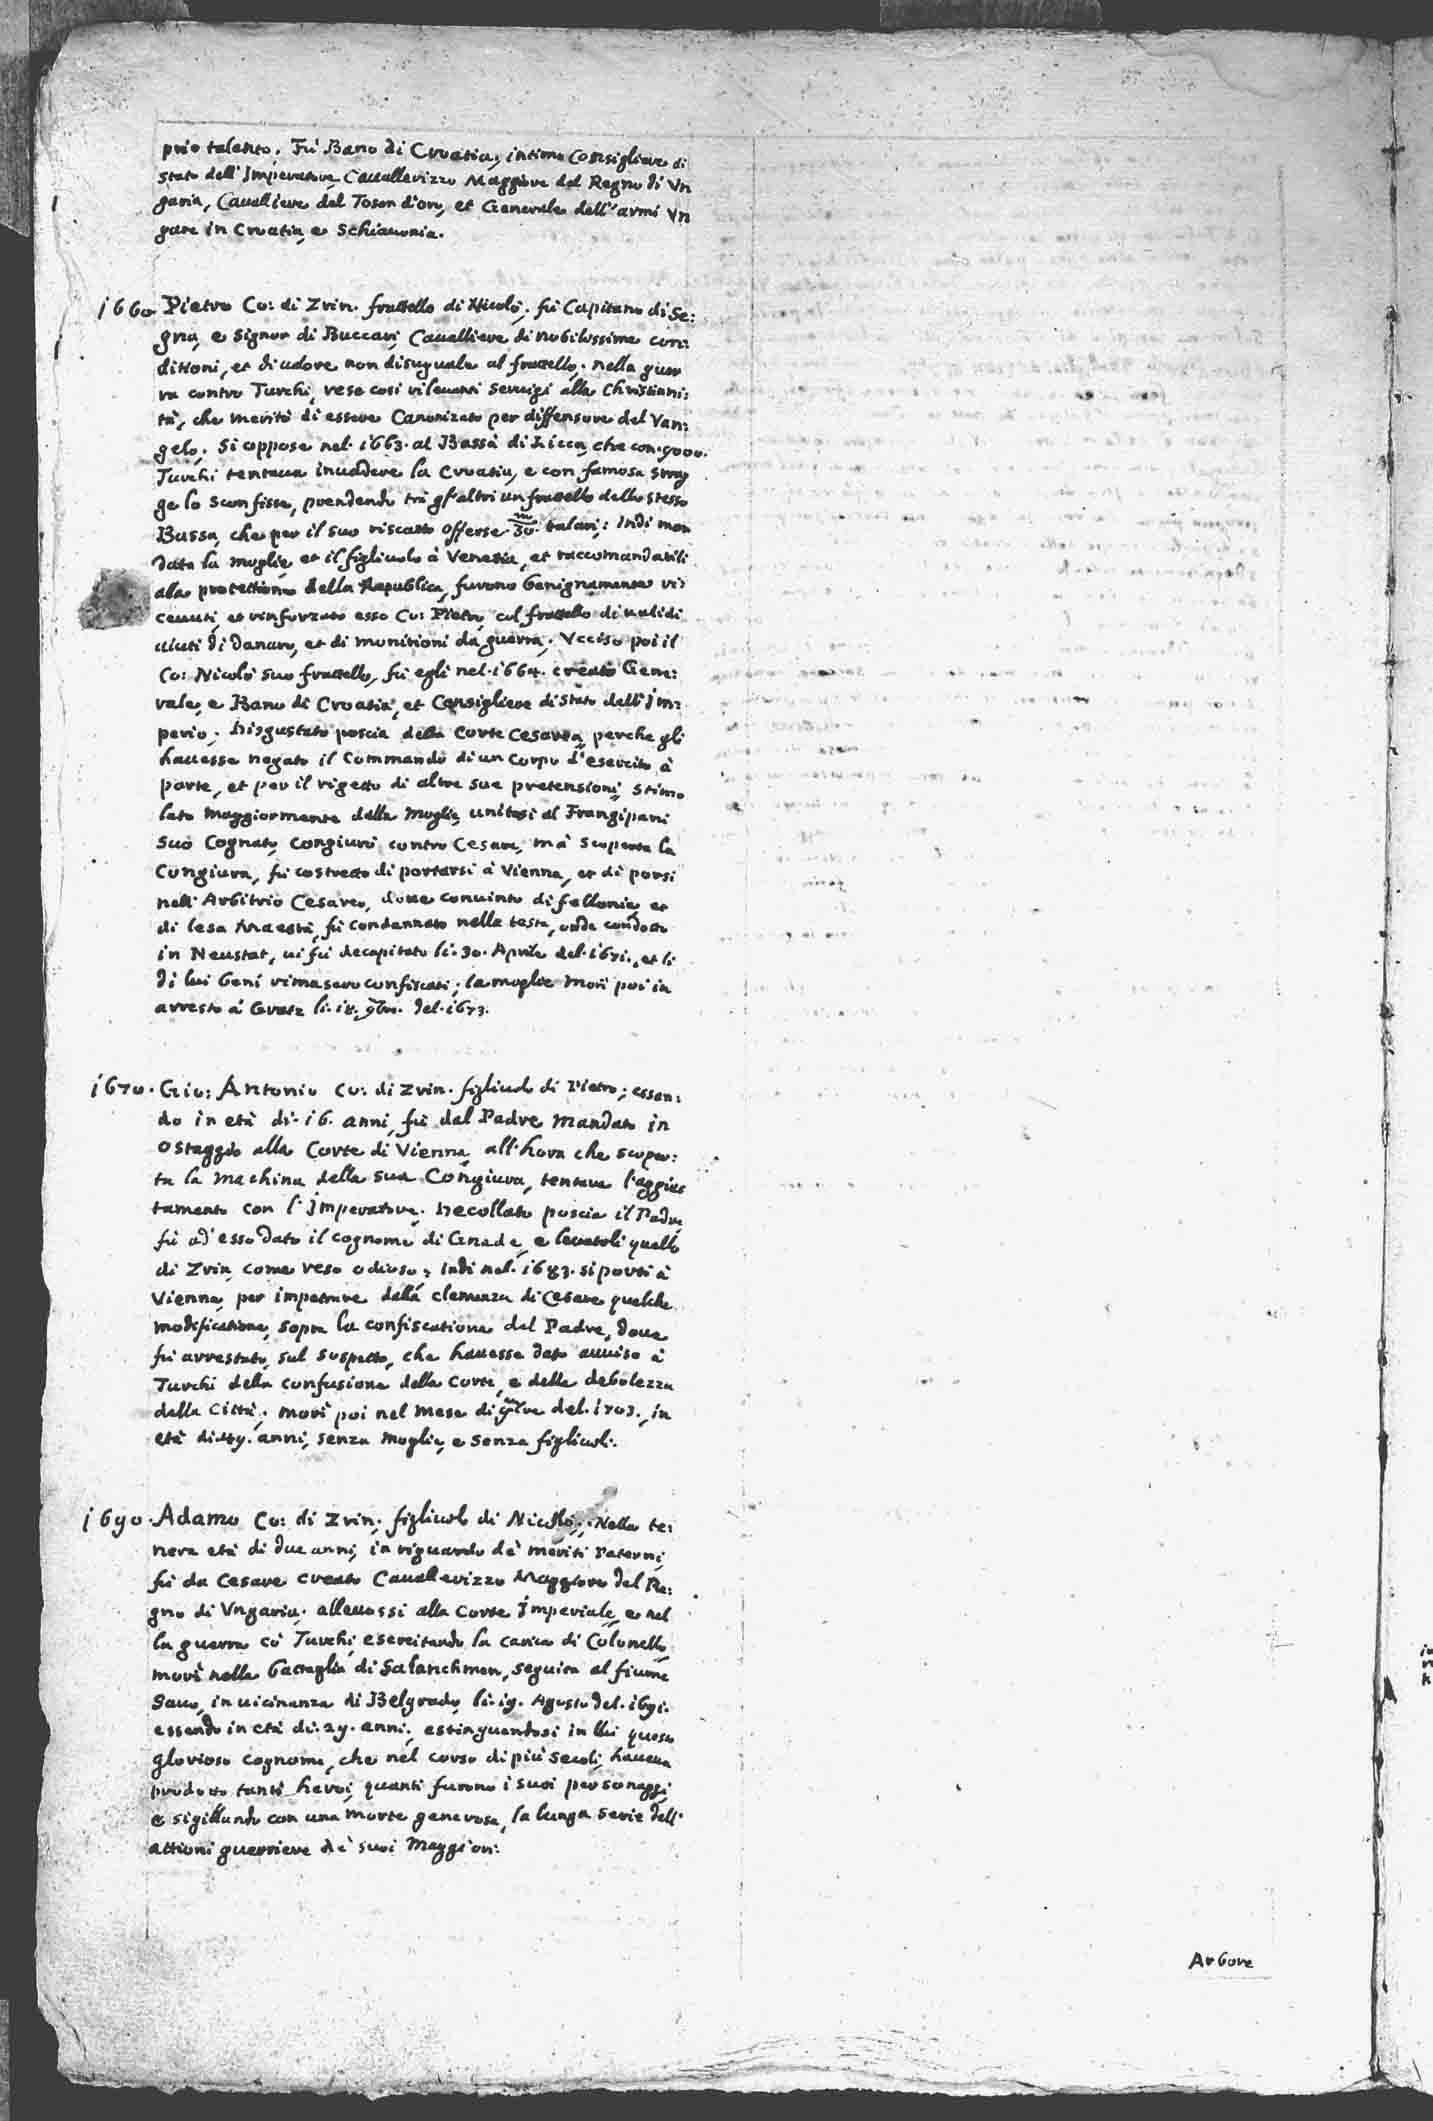 prio talento. Fù Bano di Croatia, intimo Consigliere di
stato dell'Imperatore, Cauallerizzo Maggiore del Regno di Vn
garia, Caualliere del Toson d'oro, et Generale dell'armi Vn
gare in Croatia, e Schiauonia.
1660. Pietro Co: di Zrin. frattello di Nicolò, fù Capitano di Se:
gna, e Signor di Buccari, Caualliere di nobilissime con:
dittioni, et di ualore non disuguale al frattello; nella guer
ra contro Turchi, rese così rileuanti seruigi alla Christiani:
tà, che meritò di essere Canonizato per diffensore del Van:
gelo. Si oppose nel 1663. al Bassà di Licca, che con 9000.
Turchi tentaua inuadere la Croatia, e con famosa stray
ge lo sconfisse, prendendo trà gl'altri un frattello dello stesso
Bassa, che per il suo riscatto offerse 30.m talari; Indi man
data la moglie, et il figliuolo à Venetia, et raccomandatili
alla protettione della Republica, furono benignamente ri:
ceuuti, et rinforzato esso Co: Pietro, col frattello di ualidi
aiuti di danaro, et di munitioni da guerra. Vcciso poi il
Co: Nicolò suo frattello, fù egli nel 1664. creato Gene:
rale, e Bano di Croatia, et Consigliere di Stato dell'Im:
perio. Disgustato poscia della Corte Cesarea, perche gli
hauesse negato il Commando di un Corpo d'esercito à
parte, et per il rigetto di altre sue pretensioni, stimo
lato maggiormente dalla moglie, unitosi al Frangipani
suo Cognato, congiurò contro Cesare, mà scoperta la
Congiura, fù costretto di portarsi à Vienna, et di porsi
nell'Arbitrio Cesareo, doue conuinto di fellonia, et
di lesa Maestà, fù condannato nella testa, onde condotto
in Neustat, ui fù decapitato li. 30. Aprile del 1671., et li
di lui beni rimasero confiscati; la moglie morì poi in
arresto à Gratz li. 18. 9bre. del 1673.
1670. Gio: Antonio Co: di Zrin. figliuolo di Pietro; essen:
do in età di 16. anni, fù dal Padre mandato in
ostaggio alla Corte di Vienna, all'hora che scoper:
ta la machina della sua Congiura, tentaua l'aggius
tamento con l'Imperatore. Decollato poscia il Padre
fù ad'esso dato il cognome di Gnade, e leuatoli quello
di Zrin, come reso odioso; Indi nel 1683. si portò à
Vienna, per impetrare dalla clemenza di Cesare qualche
modificatione, sopra la confiscatione del Padre, doue
fù arrestato, sul sospetto, che hauesse dato auuiso à
Turchi della confusione della Corte, e della debolezza
della Città; morì poi nel mese di del 1703., in
età di 49. anni, senza moglie, e senza figliuoli.
1690. Adamo Co: di Zrin. figliuolo di Nicolò; Nella te:
nera età di due anni, in riguardo de' meriti Paterni,
fù da Cesare creato Cauallerizzo Maggiore del Re:
gno di Vngaria; alleuossi alla Corte Imperiale, e nel
la guerra co' Turchi, esercitando la carica di Colonello,
morì nella battaglia di Salanchmen, seguita al fiume
Sauo, in uicinanza di Belgrado, li. 19. Agosto del 1691.
essendo in età di 29. anni, estinguendosi in lui questo
glorioso cognome, che nel corso di più secoli, haueua
prodotto tanti heroi, quanti furono i suoi personaggi,
e sigillando con una morte generosa, la lunga serie dell'
attioni guerriere de' suoi Maggiori.
Arbore